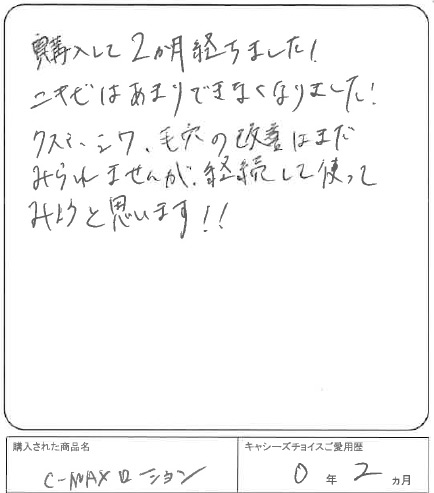 購入して2か月経ちました!
ニキビはあまりできなくなりました!
クスミ、シワ、毛穴の改善はまだ
みられませんが、継続して使って
みようと思います!!
購入された商品名
C-MAXローション
キャシーズチョイスご愛用歴
0年2ヵ月